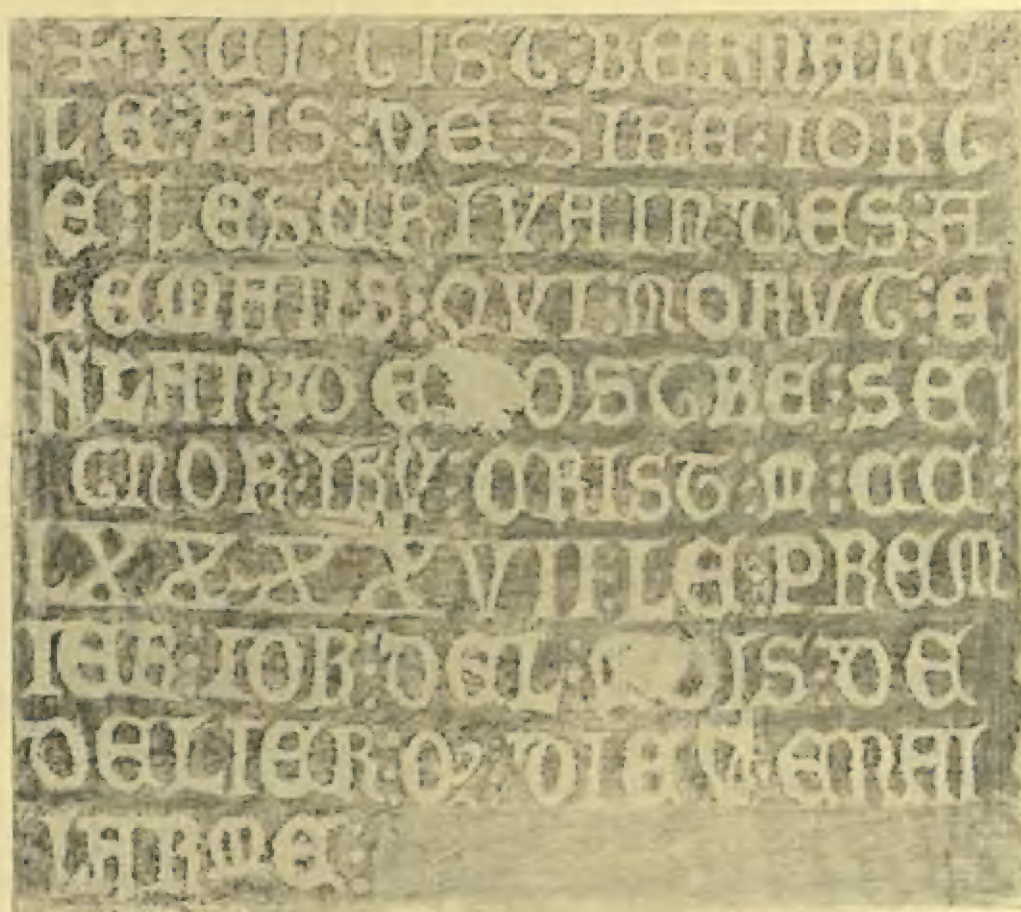 + ICI : GIST BERNART
LE : FIS : DE : SIRE : IORG
E : LESCRIVAIN DES : A
LEMANS : QVI : MORVT : E
N LAN : D E OSTRE : SEI
GNOR : IHV CRIST M : CC :
LXXXXVII LE : PREM
IER : IOR DEL : IS : DE
DELIER : Q DIE T EN AI
LARME :